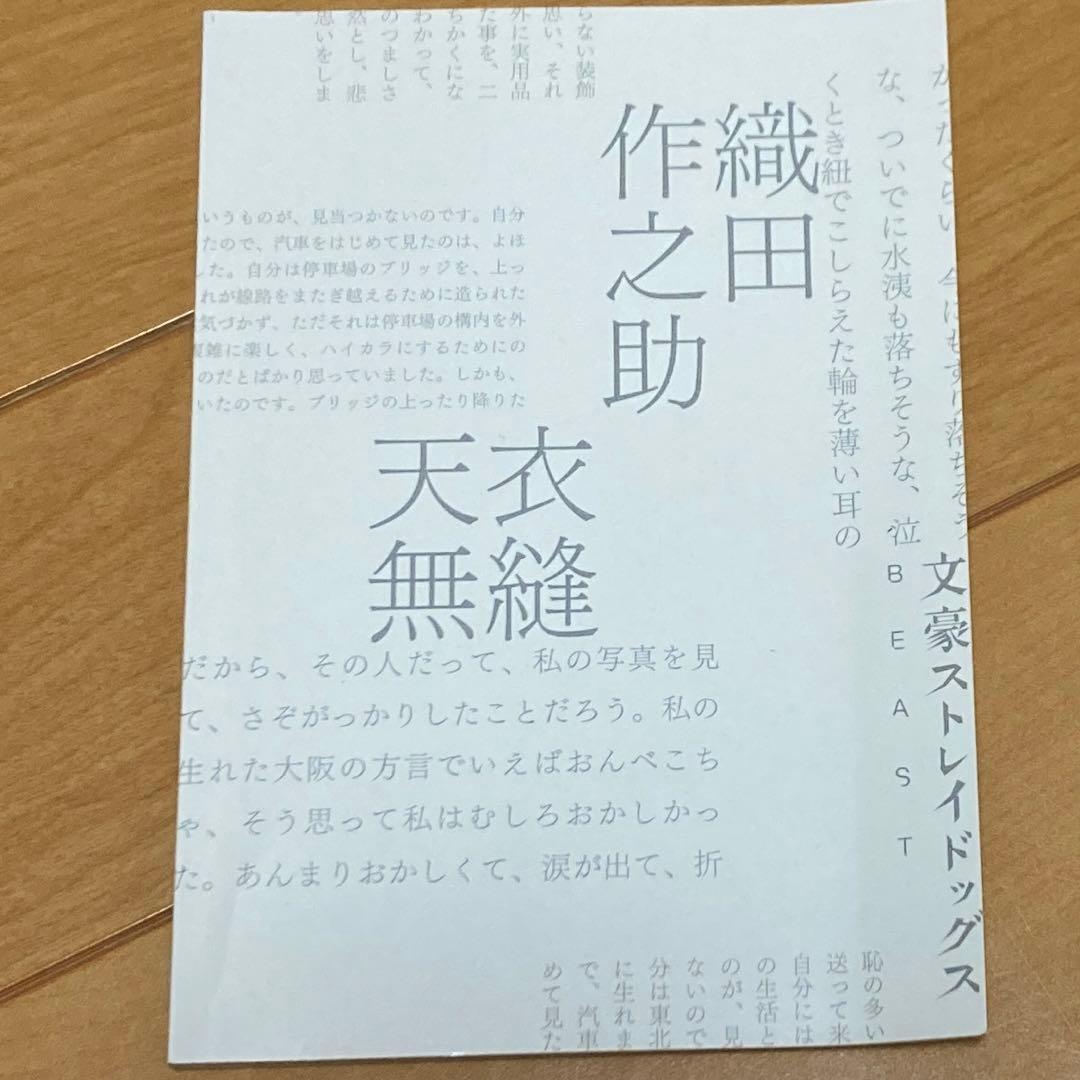 らない装飾
思い、それ
外に実用品
た事を、二
ちかくにな
わかって、
のつましさ
然とし、悲
思いをしま
な、ついでに水洟も落ちそうな、泣
くとき紐でこしらえた輪を薄い耳の
織田
作之助
いうものが、見当つかないのです。自分
たので、汽車をはじめて見たのは、よほ
した。自分は停車場のブリッジを、上っ
れが線路をまたぎ越えるために造られた
気づかず、ただそれは停車場の構内を外
複雑に楽しく、ハイカラにするためにの
のだとばかり思っていました。しかも、
いたのです。ブリッジの上ったり降りた
天衣
無縫
文豪ストレイドッグス
BEAST
だから、その人だって、私の写真を見
て、さぞがっかりしたことだろう。私の
生れた大阪の方言でいえばおんべこち
ゃ、そう思って私はむしろおかしかっ
た。あんまりおかしくて、涙が出て、折
恥の多い
送って来
自分には
の生活と
のが、見
ないので
分は東北
に生れま
で、汽車
めて見た